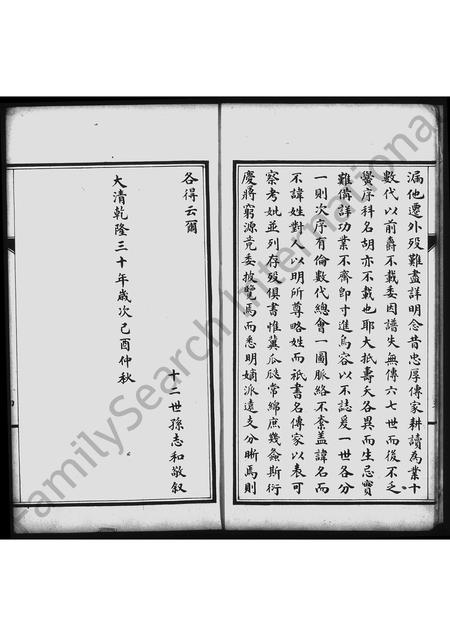 漏他遷外歿難盡詳明念昔忠厚傳家耕讀為業十
數代以前爵不載委因譜失無傳六七世而後不乏
黌序科名胡亦不載也耶大抵壽夭各異而生忌實
難備詳功業不齊即寸進烏容以不誌爰一世各分
一則次序有倫數代總會一圖脈絡不紊蓋諱名而
不諱姓對人以明所尊略姓而祇書名傳家以表可
察考妣並列存歿俱書惟冀瓜瓞常綿庶幾螽斯衍
慶將窮源竟委披覽焉而悉明嫡派遠支分晰焉則
各得云爾
十二世孫志和敬叙
大清乾隆三十年歲次己酉仲秋
FamilySearch International